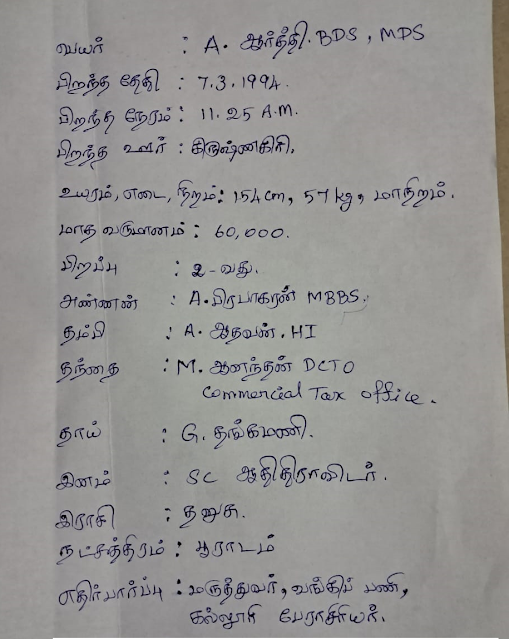 பெயர் : A. ஆர்த்தி. BDS, MDS
பிறந்த தேதி : 7.3.1994.
பிறந்த நேரம் : 11.25 A.M.
பிறந்த ஊர் : கிருஷ்ணகிரி.
உயரம், எடை, நிறம் : 154 cm, 57 kg, மாநிறம்.
மாத வருமானம் : 60,000.
பிறப்பு : 2-வது.
அண்ணன் : A. பிரபாகரன் MBBS.
தம்பி : A. ஆதவன். HI
தந்தை : M. ஆனந்தன் DCTO
Commercial Tax office.
தாய் : G. தங்கமணி.
இனம் : SC ஆதிதிராவிடர்.
இராசி : தனுசு.
நட்சத்திரம் : பூராடம்
எதிர்பார்ப்பு : மருத்துவர், வங்கிப் பணி,
கல்லூரி பேராசிரியர்.